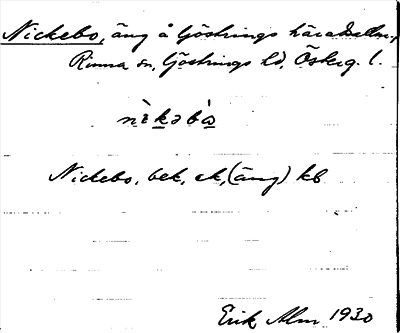 Nickebo, äng å Göstrings häradsallm.,
Rinna sn, Göstrings hd, Österg. l.
nèkəbò
Nickebo, bek, ek, (äng) kb
Erik Alm 1930